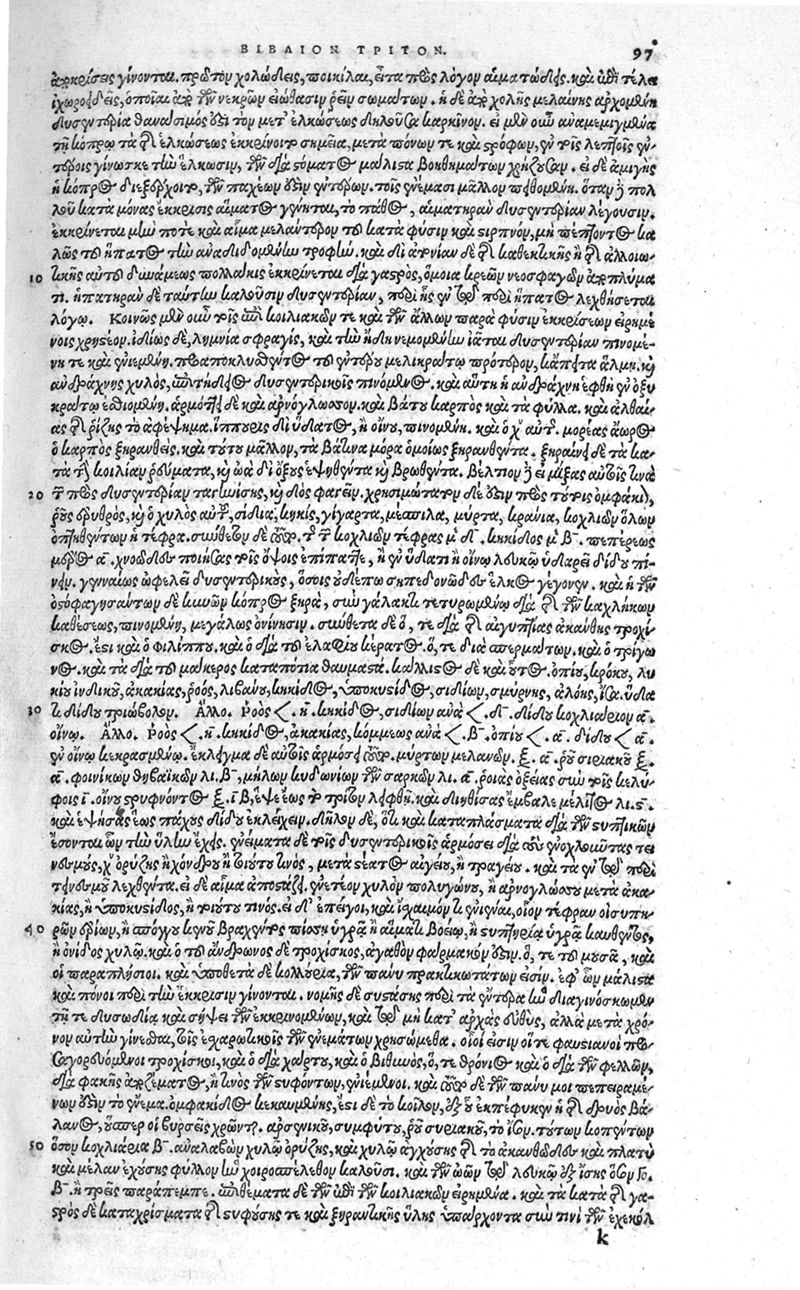 ΒΙΒΛΙΟΝ ΤΡΙΤΟΝ. 97
ἀποκρίσεις γίνονται. πρῶτον χολώδεις, ποικίλαι, εἶτα πρὸς λόγον αἱματώδεις. καὶ ἐπὶ τέλει
ἰχωροειδεῖς, ὁποῖαι ἀπὸ τῶν νεκρῶν εἰώθασιν ῥεῖν σωμάτων. ἡ δὲ ἀπὸ χολῆς μελαίνης ἀρχομένη
δυσεντερία θανάσιμός ἐστι τὸν μετ' ἑλκώσεως δηλοῦσα καρκῖνον. εἰ μὲν οὖν ἀναμεμιγμένα
τῇ κόπρῳ τὰ τῆς ἑλκώσεως ἐκκρίνοιτο σημεῖα, μετὰ πόνων τε καὶ στρόφων, ἐν τοῖς λεπτοῖς ἐν-
τέροις γίνωσκε τὴν ἕλκωσιν, τῶν διὰ στόματος μάλιστα βοηθημάτων χρῄζουσαν. εἰ δὲ ἀμιγὴς
ἡ κόπρος διεξέρχοιτο, τῶν παχέων ἐστὶν ἐντέρων. τοῖς ἐνέμασι μᾶλλον πειθομένη. ὅταν δὲ πολ
λοῦ κατὰ μόνας ἔκκρισις αἵματος γένηται, τὸ πάθος, αἱματηρὰν δυσεντερίαν λέγουσιν.
ἐκκρίνεται μέν ποτε καὶ αἷμα μελάντερον τοῦ κατὰ φύσιν καὶ στιλπνὸν, μὴ πέττοντος κα
λῶς τοῦ ἥπατος τὴν ἀναδιδομένην τροφήν. καὶ δι' ἀτονίαν δὲ τῆς καθεκτικῆς ἢ τῆς ἀλλοιω-
10 τικῆς αὐτοῦ δυνάμεως πολλάκις ἐκκρίνεται διὰ γαστρὸς, ὅμοια κρεῶν νεοσφαγῶν ἀποπλύμα
τι. ἡπατηρὰν δὲ ταύτην καλοῦσιν δυσεντερίαν, περὶ ἧς ἐν τῷ περὶ ἥπατος λεχθήσεται
λόγῳ. Κοινῶς μὲν οὖν τοῖς ἐπὶ κοιλιακῶν τε καὶ τῶν ἄλλων παρὰ φύσιν ἐκκρίσεων εἰρημέ
νοις χρηστέον. ἰδίως δὲ, λημνία σφραγὶς, καὶ τὴν ἤδη νεμομένην ἰᾶται δυσεντερίαν πινομέ-
νη τε καὶ ἐνιεμένη. προαποκλυσθέντος τοῦ ἐντέρου μελικράτῳ πρότερον, κἄπειτα ἅλμῃ. καὶ
ἀνδράχνης χυλὸς, ἐπιτήδειος δυσεντερικοῖς πινόμενος. καὶ αὐτὴ ἡ ἀνδράχνη ἑφθὴ ἐν ὀξυ
κράτῳ ἐσθιομένη. ἁρμόττει δὲ καὶ ἀρνόγλωσσον. καὶ βάτου καρπὸς καὶ τὰ φύλλα. καὶ ἀλθαί-
ας τῆς ῥίζης τὸ ἀφέψημα. ἵππουρις δι' ὕδατος, ἢ οἴνου, πινομένη. καὶ ὁ χυλὸς αὐτῆς. μορέας ἄωρος
ὁ καρπὸς ξηρανθείς. καὶ τούτου μᾶλλον, τὰ βάτινα μόρα ὁμοίως ξηρανθέντα. ξηραίνει δὲ τὰ κα-
τὰ τὴν κοιλίαν ῥεύματα, καὶ ὠὰ δι' ὄξους ἑψηθέντα καὶ βρωθέντα. βέλτιον δὲ εἰ μίξας αὐτοῖς τινὰ
20 τῶν πρὸς δυσεντερίαν ταγηνίσῃς, καὶ δὸς φαγεῖν. χρησιμώτατον δέ ἐστιν πρὸς τούτοις ὀμφάκιον,
ῥοῦς ἐρυθρὸς, καὶ ὁ χυλὸς αὐτοῦ, σίδια, κηκὶς, γίγαρτα, μέσπιλα, μύρτα, κράνια, κοχλιῶν ὅλων
ὀπτηθέντων ἡ τέφρα. συνθετέον δὲ οὕτω. τῆς τῶν κοχλιῶν τέφρας μέρη δ. κηκῖδος μέρη β. πεπέρεως
μέρος α. χνοώδη ποιήσας τοῖς ὄψοις ἐπίπαττε, ἢ ἐν ὕδατι ἢ οἴνῳ λευκῷ ὑδαρεῖ δίδου πί-
νειν. γενναίως ὠφελεῖ δυσεντερικοὺς, ὅσοις οὐδέπω σηπεδονώδη ἕλκη γέγονεν. καὶ ἡ τῶν
ὀστοφαγησάντων δὲ κυνῶν κόπρος ξηρὰ, σὺν γάλακτι τετυρωμένῳ διὰ τῆς τῶν καχλήκων
καθέσεως, πινομένη, μεγάλως ὀνίνησιν. σύνθετα δὲ ὅ, τε διὰ τῆς αἰγυπτίας ἀκάνθης τροχί-
σκος. ἔτι καὶ ὁ φιλίππου. καὶ ὁ διὰ τοῦ ἐλαφείου κέρατος. ὅ, τε διὰ σπερμάτων. καὶ ὁ τρίγω
νος. καὶ τὰ διὰ τοῦ μάκερος καταπότια θαυμαστά. κάλλιστος δὲ καὶ οὗτος. ὀπίου, κρόκου, λυ
κίου ἰνδικοῦ, ἀκακίας, ῥοὸς, λιβάνου, κηκῖδος, ὑποκυστίδος, σιδίων, σμύρνης, ἀλόης, ἴσα. ὕδα
30 τι δίδου τριώβολον. Ἄλλο. Ῥοὸς <. η. κηκῖδος, σιδίων ἀνὰ <. δ. δίδου κοχλιάριον α.
οἴνῳ. Ἄλλο. Ῥοὸς <. η. κηκῖδος, ἀκακίας, κόμμεως ἀνὰ <. β. ὀπίου <. α. δίδου <. α.
ἐν οἴνῳ κεκραμένῳ. ἔκλειγμα δὲ αὐτοῖς ἁρμόσει οὕτω. μύρτων μελάνων. ξ. α. ῥοῦ συριακοῦ ξ.
α. φοινίκων θηβαϊκῶν λι. β, μήλων κυδωνίων τῶν σαρκῶν λι. α. ῥοιᾶς ὀξείας σὺν τοῖς κελύ-
φοις ι. οἴνου στρυφνοῦ ξ. ιβ, ἕψε ἕως τὸ τρίτον λειφθῇ. καὶ διηθήσας ἔμβαλε μέλιτος λι. ς.
καὶ ἑψήσας ἕως πάχους δίδου ἐκλείχειν. δῆλον δὲ, ὅτι καὶ καταπλάσματα διὰ τῶν στυπτικῶν
ἔσονται ὧν τὴν ὕλην ἔχεις. ἐνέματα δὲ τοῖς δυσεντερικοῖς ἁρμόσει διὰ τοὺς ἐνοχλοῦντας τει
νεσμοὺς, χυλὸς ὀρύζης ἢ χόνδρου ἢ τοιούτου τινὸς, μετὰ στέατος αἰγείου, ἢ τραγείου. καὶ τὰ ἐν τῷ περὶ
τεινεσμοῦ λεχθέντα. εἰ δὲ αἷμα ἀποστάζει, ἐνετέον χυλὸν πολυγόνου, ἢ ἀρνογλώσσου μετὰ ἀκα-
κίας, ἢ ὑποκυστίδος, ἢ τοιούτου τινός. εἰ δ' ἐπείγοι, καὶ ἴσχαιμόν τι ἐνιέναι, οἷον τέφραν οἰσυπη-
40 ρῶν ἐρίων, ἢ σπόγγου καινοῦ βραχέντος πίσσῃ ὑγρᾷ ἢ αἵματι βοείῳ, ἢ στυπτηρίᾳ ὑγρᾷ καυθέντος,
ἢ ὀνίδος χυλῷ. καὶ ὁ τοῦ ἄνδρωνος δὲ τροχίσκος, ἀγαθὸν φάρμακόν ἐστιν. ὅ, τε τοῦ μούσα, καὶ
οἱ παραπλήσιοι. καὶ ὑπόθετα δὲ κολλύρια, τῶν πάνυ πρακτικωτάτων εἰσίν. ἐφ' ὧν μάλιστα
καὶ πόνοι περὶ τὴν ἔκκρισιν γίνονται. νομῆς δὲ συστάσης περὶ τὰ ἔντερα ἣν διαγινώσκομεν
τῇ τε δυσωδίᾳ καὶ σήψει τῶν ἐκκρινομένων, καὶ τῷ μὴ κατ' ἀρχὰς εὐθὺς, ἀλλὰ μετὰ χρό-
νον αὐτὴν γίνεσθαι, τοῖς ἐσχαρωτικοῖς τῶν ἐνεμάτων χρησώμεθα. οἷοί εἰσιν οἵ τε φαυστιανοὶ προ
σαγορευόμενοι τροχίσκοι, καὶ ὁ διὰ χάρτου, καὶ ὁ βιθυνὸς, ὅ, τε θρόνιος καὶ ὁ διὰ τῶν φελλῶν,
διὰ φακῆς ἀποζέματος, ἤ τινος τῶν στυφόντων, ἐνιέμενοι. καὶ οὗτο δὲ τῶν πάνυ μοι πεπειραμέ-
νων ἐστὶν τὸ ἔνεμα. ὀμφακῖδος κεκαυμένης, ἔστι δὲ τὸ κοῖλον, ἐξ οὗ ἐκπέφυκεν ἡ τῆς δρυὸς βά-
λανος, ᾧπερ οἱ βυρσεῖς χρῶνται. ἀρσενικοῦ, συμφύτου, ῥοῦ συριακοῦ, τὸ ἴσον. τούτων κοπέντων
50 ὅσον κοχλιάρια β. ἀναλαβὼν χυλῷ ὀρύζης, καὶ χυλῷ ἀγχούσης τῆς τὸ ἀκανθῶδες καὶ πλατὺ
καὶ μέλαν ἐχούσης φύλλον ἣν χοιροσπέλεθον καλοῦσι. καὶ τῶν ὠῶν τῷ λευκῷ ἐξ ἴσης ὅσον
β. ἢ τρεῖς παράπεμπε. ἐπιθέματα δὲ τῶν ἐπὶ τῶν κοιλιακῶν εἰρημένα. καὶ τὰ κατὰ τῆς γα-
στρὸς δὲ καταχρίσματα τῆς στυφούσης τε καὶ ξηραντικῆς ὕλης ὑπάρχοντα σὺν τινὶ τῶν ἐχεκόλ
k